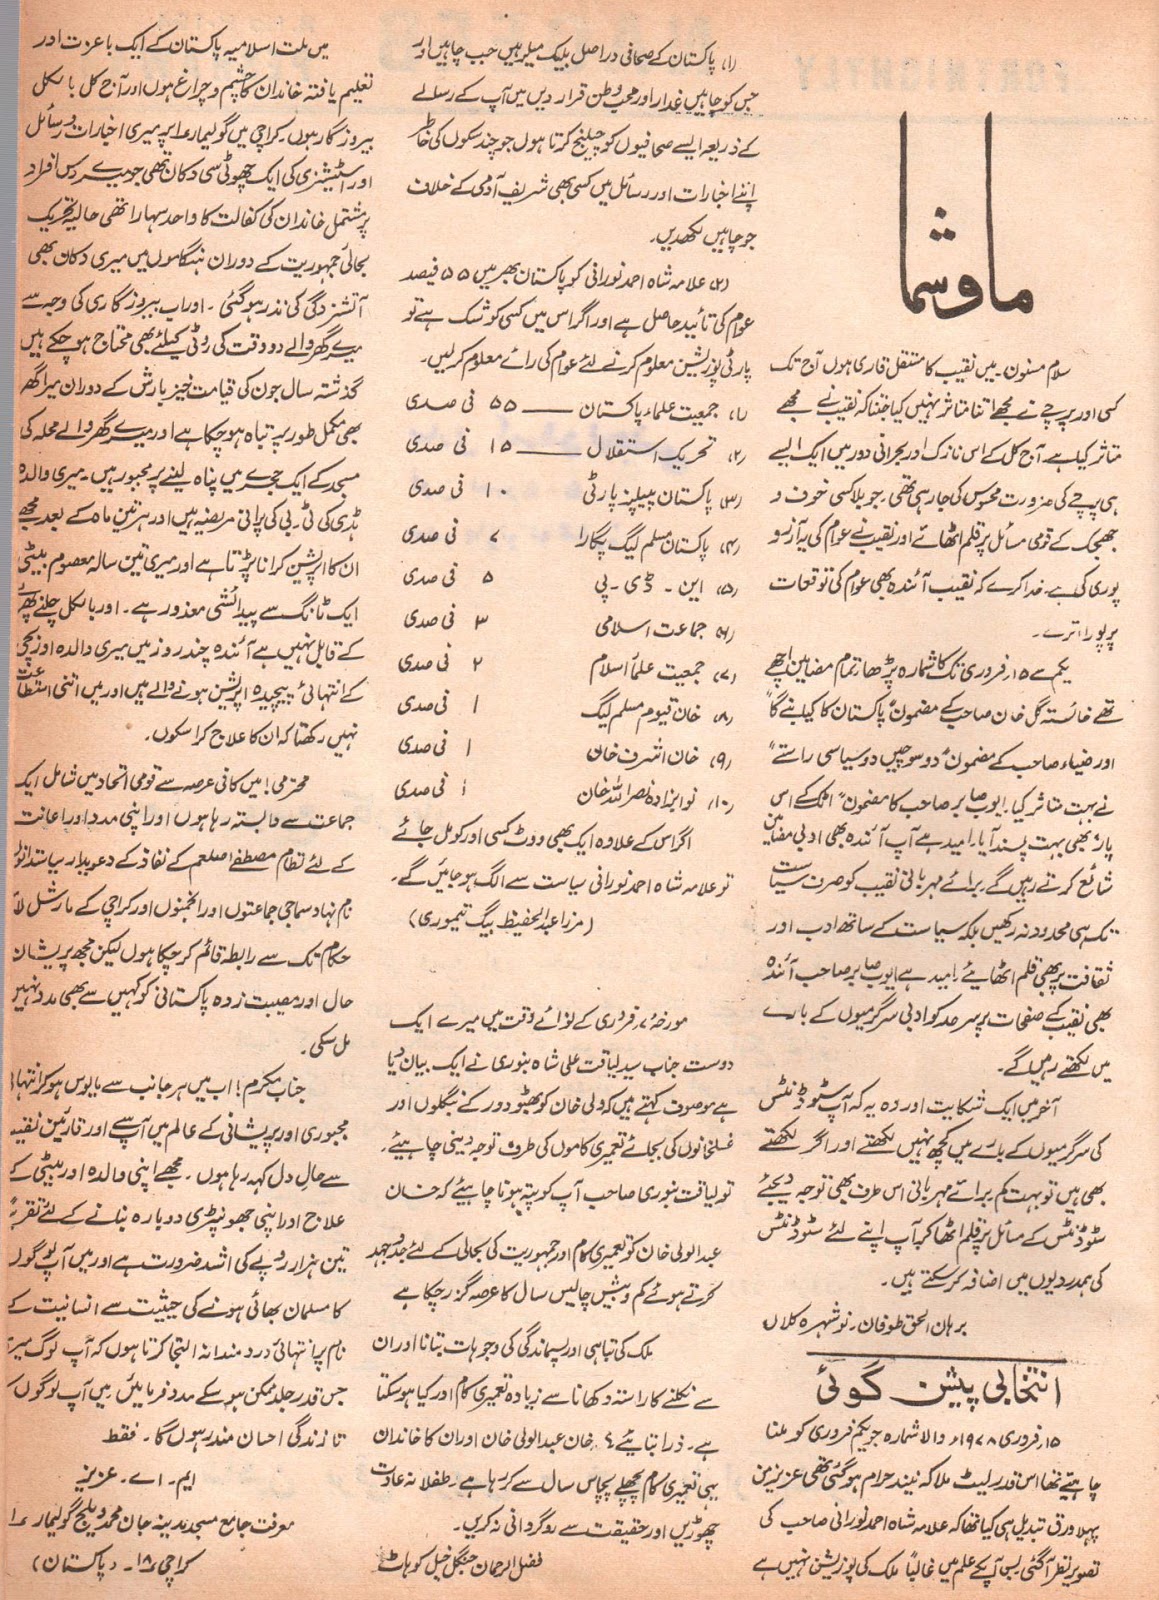 ماوشما
سلام مسنون۔ میں نقیب کا مستقل قاری ہوں آج تک
کسی اور پرچے نے مجھے اتنا متاثر نہیں کیا جتنا کہ نقیب نے مجھے
متاثر کیا ہے۔ آج کل کے اس نازک اور بحرانی دور میں ایک ایسے
ہی پرچے کی ضرورت محسوس کی جا رہی تھی۔ جو بلا کسی خوف و
جھجک کے قومی مسائل پر قلم اٹھائے اور نقیب نے عوام کی یہ آرزو
پوری کی ہے۔ خدا کرے کہ نقیب آئندہ بھی عوام کی توقعات
پر پورا اترے۔
یکم سے ۱۵ر فروری تک کا شمارہ پڑھا، تمام مضامین اچھے
تھے خائستہ گل خان صاحب کے مضمون "پاکستان کا کیا بنے گا"
اور ضیاء صاحب کے مضمون "دو سوچیں دو سیاسی راستے"
نے بہت متاثر کیا۔ ایوب صابر صاحب کا مضمون "اٹک کے اس
پار" بھی بہت پسند آیا۔ امید ہے آپ آئندہ بھی ادبی مضامین
شائع کرتے رہیں گے۔ برائے مہربانی نقیب کو صرف سیاست
تک ہی محدود نہ رکھیں بلکہ سیاست کے ساتھ ادب اور
ثقافت پر بھی قلم اٹھایئے۔ امید ہے ایوب صابر صاحب آئندہ
بھی نقیب کے صفحات پر سرحد کو ادبی سرگرمیوں کے بارے
میں لکھتے رہیں گے۔
آخر میں ایک شکایت اور وہ یہ کہ آپ سٹوڈنٹس
کی سرگرمیوں کے بارے میں کچھ نہیں لکھتے اور اگر لکھتے
بھی ہیں تو بہت کم برائے مہربانی اس طرف بھی توجہ دیجئے
سٹوڈنٹس کے مسائل پر قلم اٹھا کر آپ اپنے لئے سٹوڈنٹس
کی ہمدردیوں میں اضافہ کر سکتے ہیں۔
برہان الحق طوفان۔ نوشہرہ کلاں
انتخابی پیشن گوئی
۱۵ر فروری ۱۹۷۸ء والا شمارہ جو یکم فروری کو ملنا
چاہیئے تھا اس قدر لیٹ ملا کہ نیند حرام ہو گئی تھی عزیز من
پہلا ورق تبدیل ہی کیا تھا کہ علامہ شاہ احمد نورانی صاحب کی
تصویر نظر آ گئی۔ بس آپ کے علم میں غالباً ملک کی پوزیشن نہیں ہے
(۱) پاکستان کے صحافی دراصل بلیک میلر ہیں جب چاہیں اور
جس کو چاہیں غدار اور محب وطن قرار دیں میں آپ کے رسالے
کے ذریعہ ایسے صحافیوں کو چیلنج کرتا ہوں جو چند سکوں کی خاطر
اپنے اخبارات اور رسائل میں کسی بھی شریف آدمی کے خلاف
جو چاہیں لکھ دیں۔
(۲) علامہ شاہ احمد نورانی کو پاکستان بھر میں ۵۵ فیصد
عوام کی تائید حاصل ہے اور اگر اس میں کسی کو شک ہے تو
پارٹی پوزیشن معلوم کرنے لئے عوام کی رائے معلوم کر لیں۔
(۱) جمعیت علماء پاکستان ۔۔۔ ۵۵ فی صدی
(۲) تحریک استقلال ۔۔۔ ۱۵ فی صدی
(۳) پاکستان پیپلز پارٹی ۱۰ فی صدی
(۴) پاکستان مسلم لیگ پگارا ۷ فی صدی
(۵) این۔ ڈی۔ پی ۵ فی صدی
(۶) جماعت اسلامی ۳ فی صدی
(۷) جمعیت علماً اسلام ۲ فی صدی
(۸) خان قیوم مسلم لیگ ۱ فی صدی
(۹) خان اشرف خان ۱ فی صدی
(۱۰) نوابزادہ نصر اللہ خان ۱ فی صدی
اگر اس کے علاوہ ایک بھی ووٹ کسی اور کو مل جائے
تو علامہ شاہ احمد نورانی سیاست سے الگ ہو جائیں گے۔
(مرزا عبد الحفیظ بیگ تیموری)
مورخہ ۷ر فروری کے نوائے وقت میں میرے ایک
دوست جناب سید لیاقت علی شاہ بنوری نے ایک بیان دیا
ہے موصوف کہتے ہیں کہ ولی خان کو بھٹو دور کے بنگلوں اور
غسلخانوں کی بجائے تعمیری کاموں کی طرف توجہ دینی چاہیئے۔
تو لیاقت بنوری صاحب آپ کو پتہ ہونا چاہیئے کہ خان
عبد الولی خان کو تعمیری کام اور جمہوریت کی بحالی کے لئے جدوجہد
کرتے ہوئے کم و بیش چالیس سال کا عرصہ گزر چکا ہے
ملک کی تباہی اور پسماندگی کی وجوہات بتانا اور ان
سے نکلنے کا راستہ دکھانا سے زیادہ تعمیری کام اور کیا ہو سکتا
ہے۔ ذرا بتائیے؟ خان عبد الولی خان اور ان کا خاندان
یہی تعمیری کام پچھلے پچاس سال سے کر رہا ہے۔ طفلانہ عادت
چھوڑیں اور حقیقت سے روگردانی نہ کریں۔
فضل الرحمان جنگل خیل کوہاٹ
میں ملت اسلامیہ پاکستان کے ایک باعزت اور
تعلیم یافتہ خاندان کا چشم و چراغ ہوں اور آج کل بالکل
بیروزگار ہوں۔ کراچی میں گولیمار ۱ پر میری اخبارات و رسائل
اور اسٹیشنری کی ایک چھوٹی سی دکان تھی جو میرے دس افراد
پر مشتمل خاندان کی کفالت کا واحد سہارا تھی حالیہ تحریک
بحالیٔ جمہوریت کے دوران ہنگاموں میں میری دکان بھی
آتشزدگی کی نذر ہو گئی۔ اور اب بیروزگاری کی وجہ سے
میرے گھر والے دو وقت کی روٹی کیلئے بھی محتاج ہو چکے ہیں
گذشتہ سال جون کی قیامت خیز بارش کے دوران میرا گھر
بھی مکمل طور پر تباہ ہو چکا ہے اور میرے گھر والے محلہ کی
مسجد کے ایک حجرے میں پناہ لینے پر مجبور ہیں۔ میری والدہ
ہڈی کی ٹی۔ بی کی پرانی مریضہ ہیں اور ہر تین ماہ کے بعد مجھے
ان کا اپریشن کرانا پڑتا ہے اور میری تین سالہ معصوم بیٹی
ایک ٹانگ سے پیدائشی معذور ہے۔ اور بالکل چلنے پھرنے
کے قابل نہیں ہے آئندہ چند روز میں میری والدہ اور بچی
کے انتہائی پیچیدہ اپریشن ہونے والے ہیں اور میں اتنی استطاعت
نہیں رکھتا کہ ان کا علاج کرا سکوں۔
محترمی! میں کافی عرصہ سے قومی اتحاد میں شامل ایک
جماعت سے وابستہ رہا ہوں اور اپنی مدد اور اعانت
کے لئے نظام مصطفےٰ صلعم کے نفاذ کے دعویدار سیاستدانوں
نام نہاد سماجی جماعتوں اور انجمنوں اور کراچی کے مارشل لاء
حکام تک سے رابطہ قائم کر چکا ہوں لیکن مجھ پریشان
حال اور مصیبت زدہ پاکستانی کو کہیں سے بھی مدد نہیں
مل سکی۔
جناب مکرم! اب میں ہر جانب سے مایوس ہو کر انتہائی
مجبوری اور پریشانی کے عالم میں آپ سے اور قارئین نقیب
سے حال دل کہہ رہا ہوں۔ مجھے اپنی والدہ اور بیٹی کے
علاج اور اپنی جھونپڑی دوبارہ بنانے کے لئے تقریباً
تین ہزار روپے کی اشد ضرورت ہے اور میں آپ لوگوں
کا مسلمان بھائی ہونے کی حیثیت سے انسانیت کے
نام پر انتہائی دردمندانہ التجا کرتا ہوں کہ آپ لوگ میری
جس قدر جلد ممکن ہو سکے مدد فرمائیں۔ میں آپ لوگوں کا
تا زندگی احسان مند رہوں گا۔ فقط
ایم۔ اے۔ عزیز
معرفت جامع مسجد مدینہ جان محمد ویلج گولیمار ۱
کراچی ۱۸۔ (پاکستان)